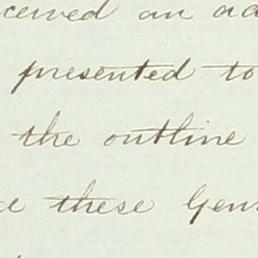 ceived an ad
presented to
the outline
these Gen